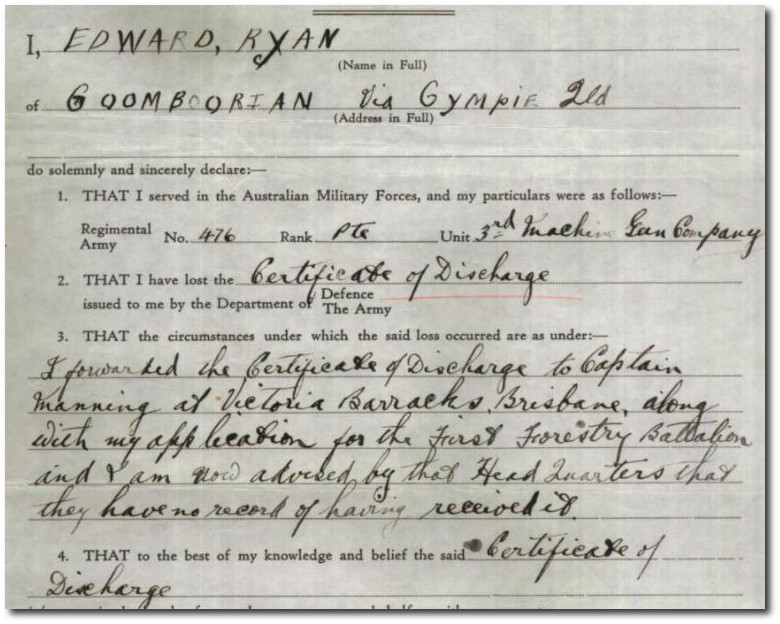 I, EDWARD, RYAN
(Name in Full)
of GOOMBOORIAN Via GYMPIE Qld
(Address in Full)
do solemnly and sincerely declare:—
1. THAT I served in the Australian Military Forces, and my particulars were as follows:—
Regimental Army No. 476 Rank Pte Unit 3rd Machine Gun Company
2. THAT I have lost the Certificate of Discharge
issued to me by the Department of Defence The Army
3. THAT the circumstances under which the said loss occurred are as under:—
I forwarded the Certificate of Discharge to Captain
Manning at Victoria Barracks, Brisbane, along
with my application for the First Forestry Battalion
and I am now advised by that Head Quarters that
they have no record of having received it.
4. THAT to the best of my knowledge and belief the said Certificate of
Discharge